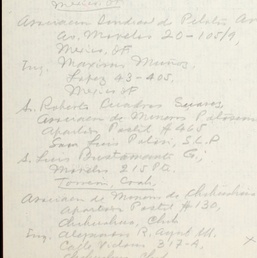 Mexico, DF
Asociacion Sindical de Pilotos
Av. Morelos 20-105/9,
Mexico, DF
Ing. Maximo Muñoz,
Lopez 43-403,
Mexico DF
Sr. Roberto Cuadros Suarez
Asociacion de Mineros Potosinos
Apartado Postal #465
San Luis Potosi, S.L.P
S. Luis Bustamante G.,
Morelos 215 Pte.
Torreon, Coah,
Asociacion de Mineros de Chihuahua
Apartado Postal #130,
Chihuahua, Chih
Ing. R. M.
Calle 317-2,
Chihuahua, Chih